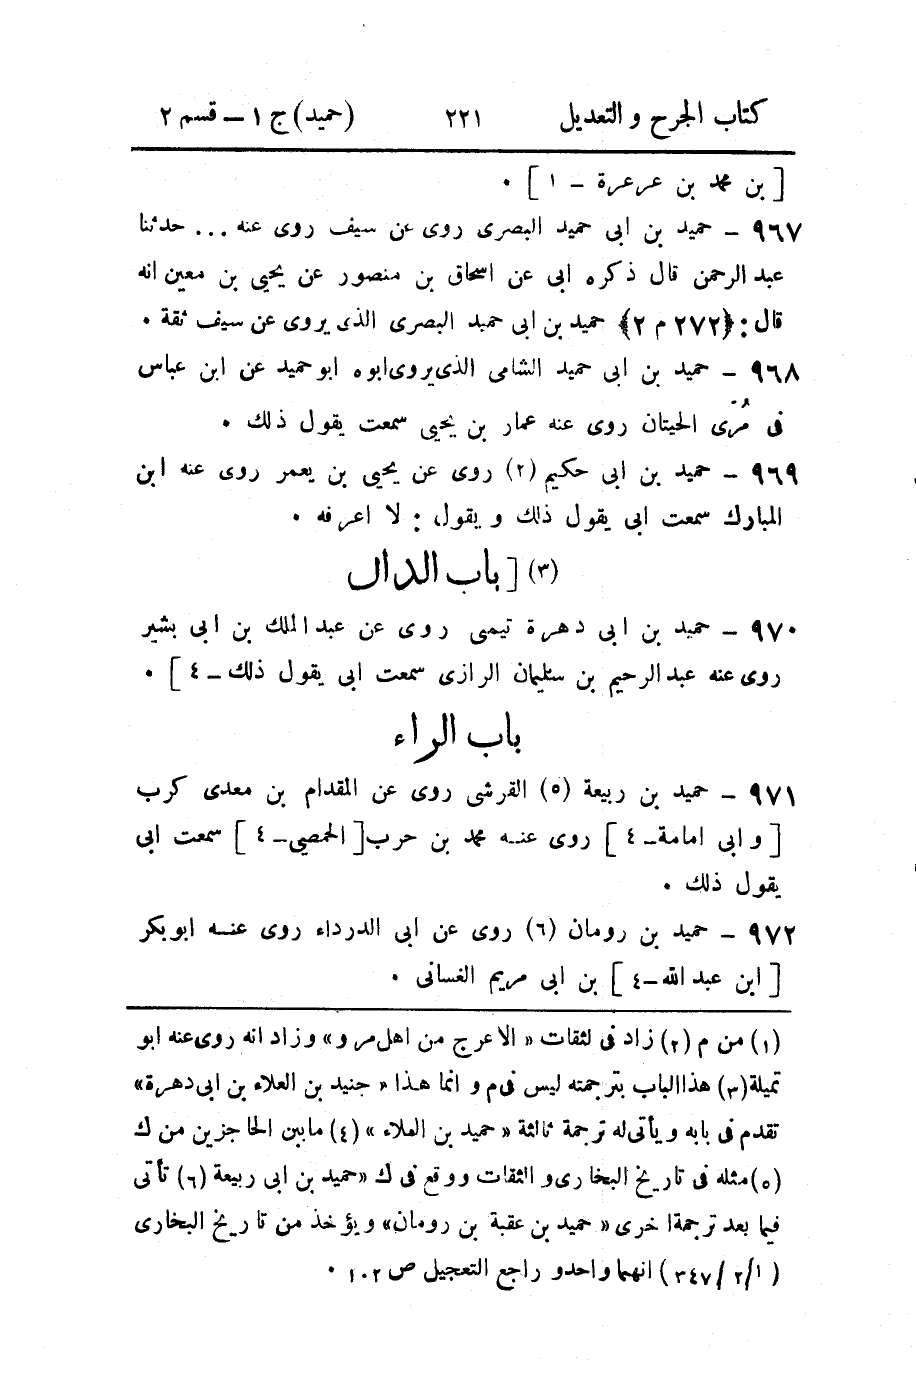 كتاب الجرح و التعديل ٢٢١ (حميد) ج ١ – قسم ٢
[ بن محمد بن عرعرة – ١ ] .
٩٦٧ – حميد بن ابى حميد البصرى روى عن سيف روى عنه ... حدثنا
عبد الرحمن قال ذكره ابى عن اسحاق بن منصور عن يحيى بن معين انه
قال : ﴿٢٧٢ م ٢﴾ حميد بن ابى حميد البصرى الذى يروى عن سيف ثقة .
٩٦٨ – حميد بن ابى حميد الشامى الذى يروى ابوه ابو حميد عن ابن عباس
فى مُرّى الحيتان روى عنه عمار بن يحيى سمعت يقول ذلك .
٩٦٩ – حميد بن ابى حكيم (٢) روى عن يحيى بن يعمر روى عنه ابن
المبارك سمعت ابى يقول ذلك و يقول : لا اعرفه .
(٣) [ باب الدال
٩٧٠ – حميد بن ابى دهرة تيمى روى عن عبد الملك بن ابى بشير
روى عنه عبد الرحيم بن سليمان الرازى سمعت ابى يقول ذلك – ٤ ] .
باب الراء
٩٧١ – حميد بن ربيعة (٥) القرشى روى عن المقدام بن معدى كرب
[ و ابى امامة – ٤ ] روى عنه محمد بن حرب [ الحمصى – ٤ ] سمعت ابى
يقول ذلك .
٩٧٢ – حميد بن رومان (٦) روى عن ابى الدرداء روى عنه ابو بكر
[ ابن عبد الله – ٤ ] بن ابى مريم الغسانى .
(١) من م (٢) زاد فى لثقات « الاعرج من اهل مرو » وزاد انه روى عنه ابو
تميلة (٣) هذا الباب بترجمته ليس فى م و انما هذا « جنيد بن العلاء بن ابى دهرة »
تقدم فى بابه و يأتى له ترجمة ثالثة « حميد بن العلاء » (٤) ما بين الحاجزين من ك
(٥) مثله فى تاريخ البخارى و الثقات و وقع فى ك « حميد بن ابى ربيعة (٦) تأتى
فيما بعد ترجمة اخرى « حميد بن عقبة بن رومان » و يؤخذ من تاريخ البخارى
( ١/ ٢/ ٣٤٧ ) انهما واحد و راجع التعجيل ص ١٠٢ .